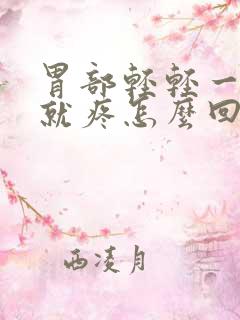 胃部轻轻一
就疼怎麼回
西凌月